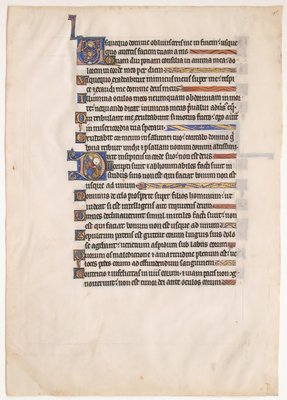 Usquequo domine obliuisceris me in finem: usque
quo auertis faciem tuam a me
Quam diu ponam consilia in anima mea: do
lorem in corde meo per diem
Usquequo exaltabitur inimicus meus super me: respi
ce et exaudi me domine deus meus
Illumina oculos meos ne umquam obdormiam in mor
te: nequando dicat inimicus meus preualui
Qui tribulant me exultabunt si motus fuero: ego aut
in misericordia tua speraui
Exultabit cor meum in salutari tuo: cantabo domino q
bona tribuit michi: et psallam nomini domini
Dixit insipiens in corde suo: non est deus
Corrupti sunt et abhominabiles facti sunt in
studiis suis: non est qui faciat bonum non est
usque ad unum
Dominus de celo prospexit super filios hominum: ut
uideat si est intelligens aut requirens deum
Omnes declinauerunt simul inutiles facti sunt: non
est qui faciat bonum non est usque ad unum
Sepulcrum patens est guttur eorum linguis suis dolo
se agebant: uenenum aspidum sub labiis eorum
Quorum os maledictione et amaritudine plenum est: ue
loces pedes eorum ad effundendum sanguinem
Contritio et infelicitas in uiis eorum: et uiam pacis non
nouerunt: non est timor dei ante oculos eorum